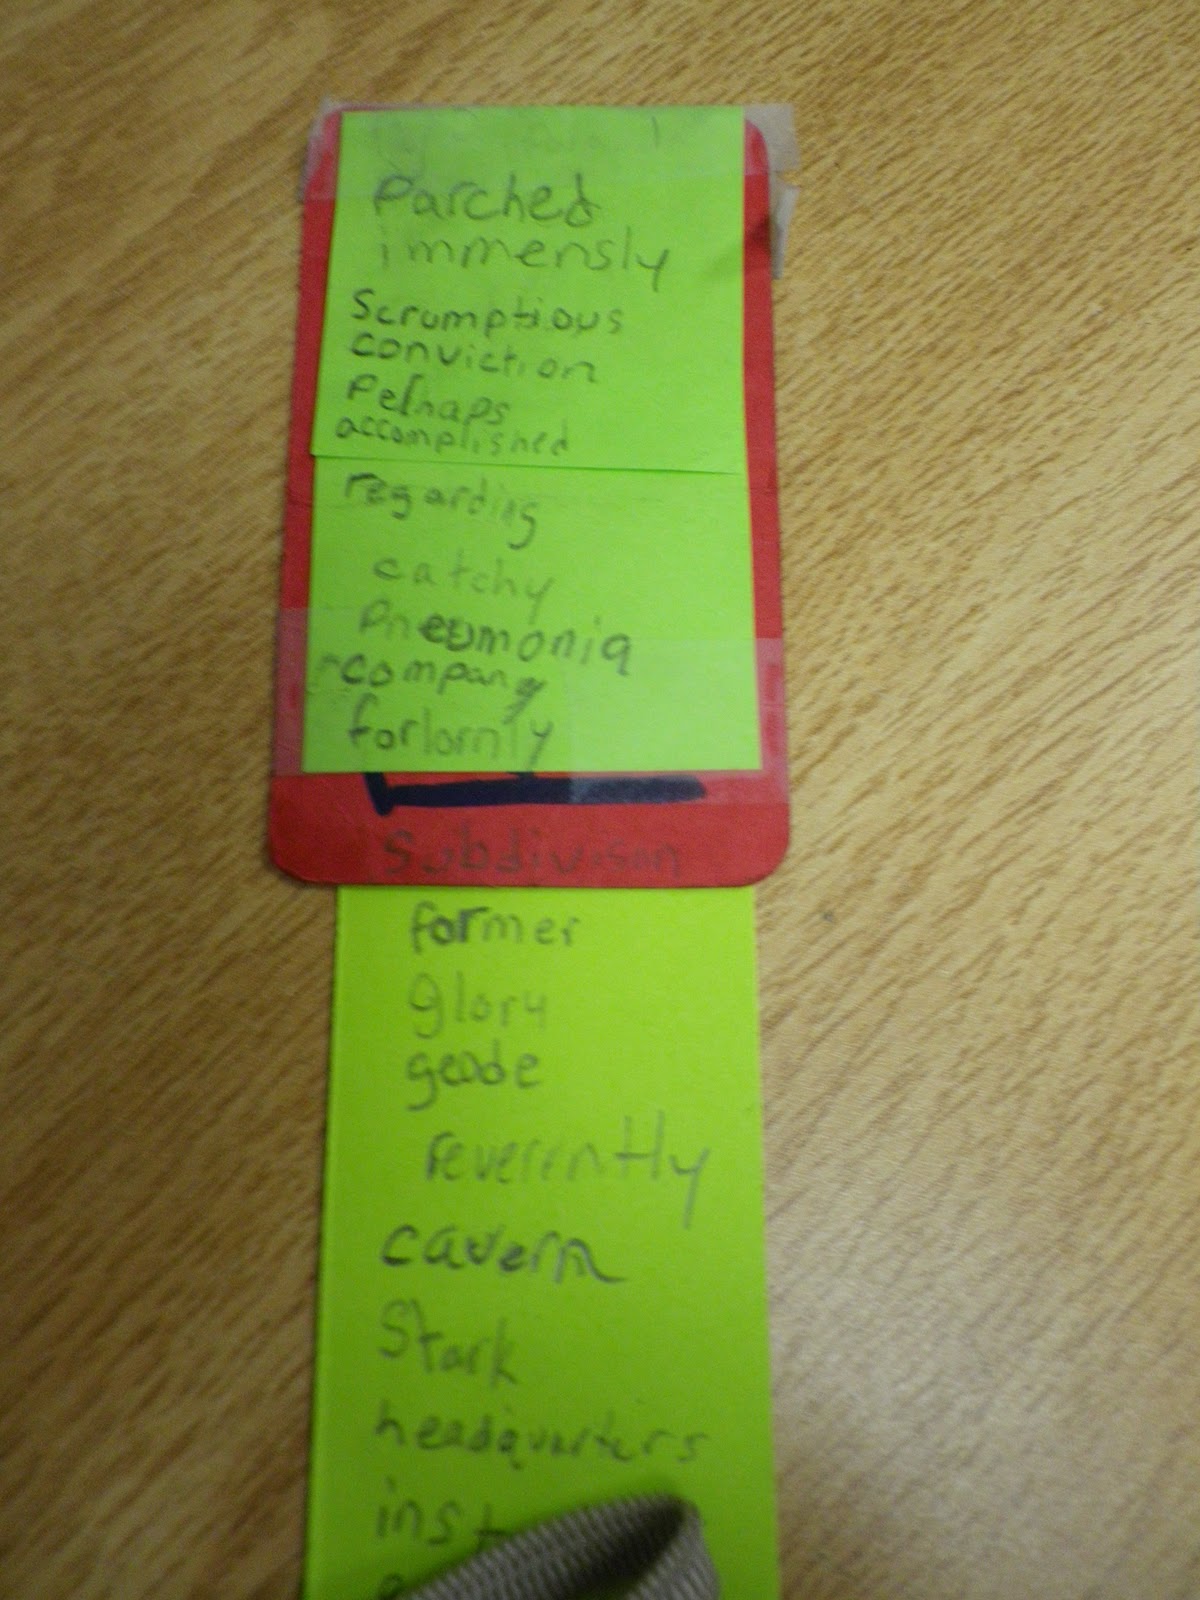 Parched
immensly
Scrumptious
conviction
Perhaps
accomplished
regarding
catchy
Pneumonia
company
forlornly
Subdivison
former
glory
geode
reverently
cavern
Stark
headquarters
inst